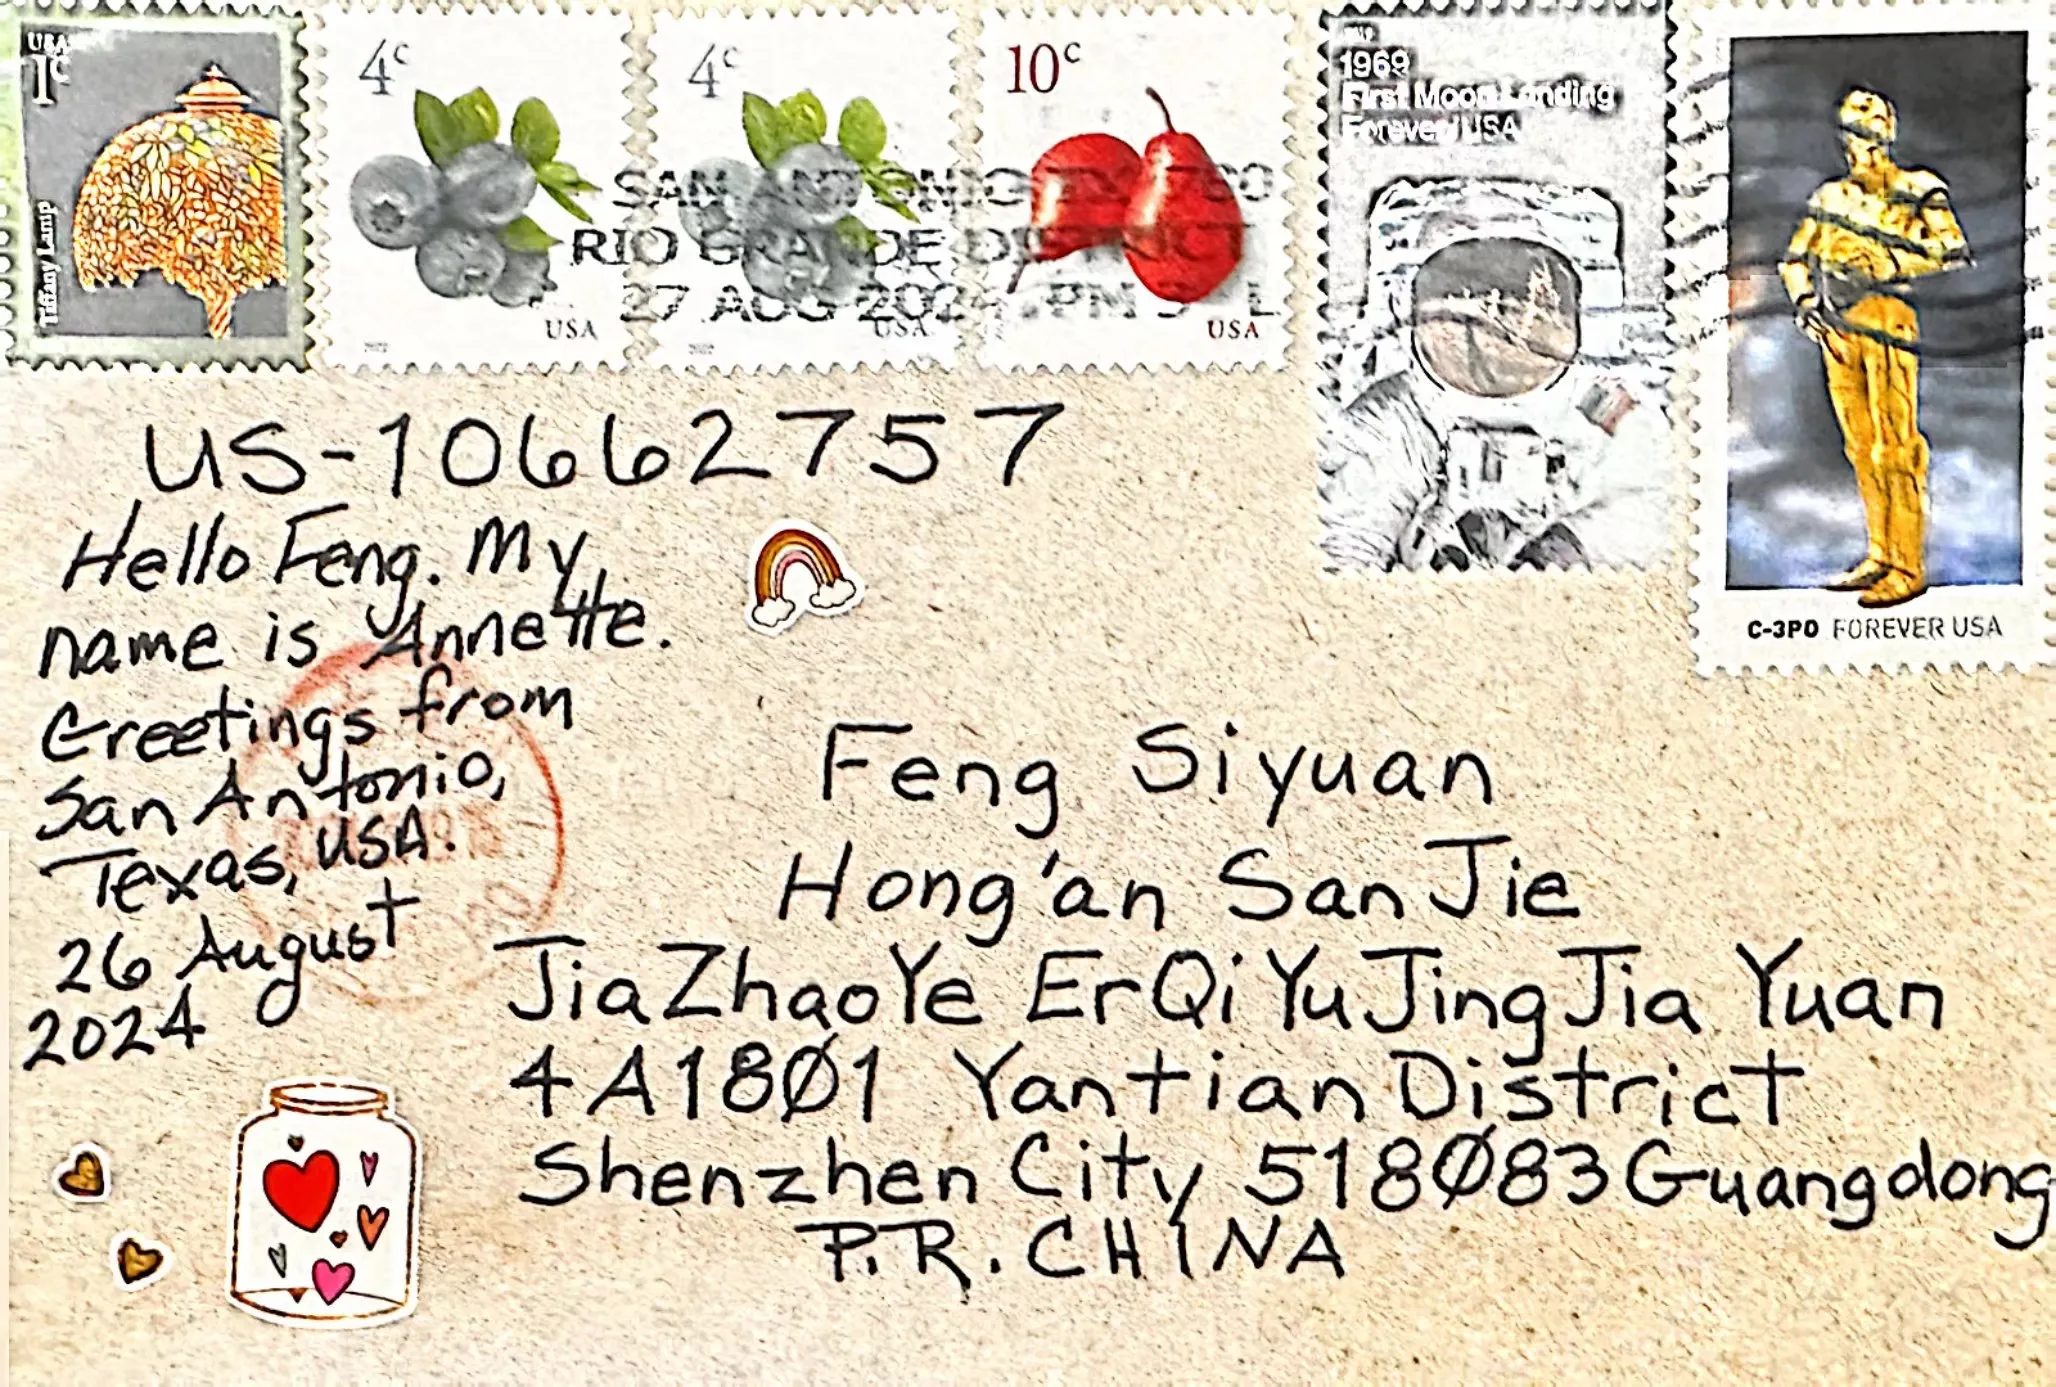 USA
1c
Tiffany Lamp
4c
USA
4c
USA
10c
USA
1969
First Moon Landing
Forever/USA
C-3PO FOREVER USA
SAN ANTONIO
RIO GRANDE DISTRICT
27 AUG 2024 PM L
US-10662757
Hello Feng. My
name is Annette.
Greetings from
San Antonio,
Texas, USA.
26 August
2024
Feng Siyuan
Hong'an San Jie
JiaZhaoYe ErQiYuJingJia Yuan
4A1801 Yantian District
Shenzhen City 518083 Guangdong
P.R. CHINA